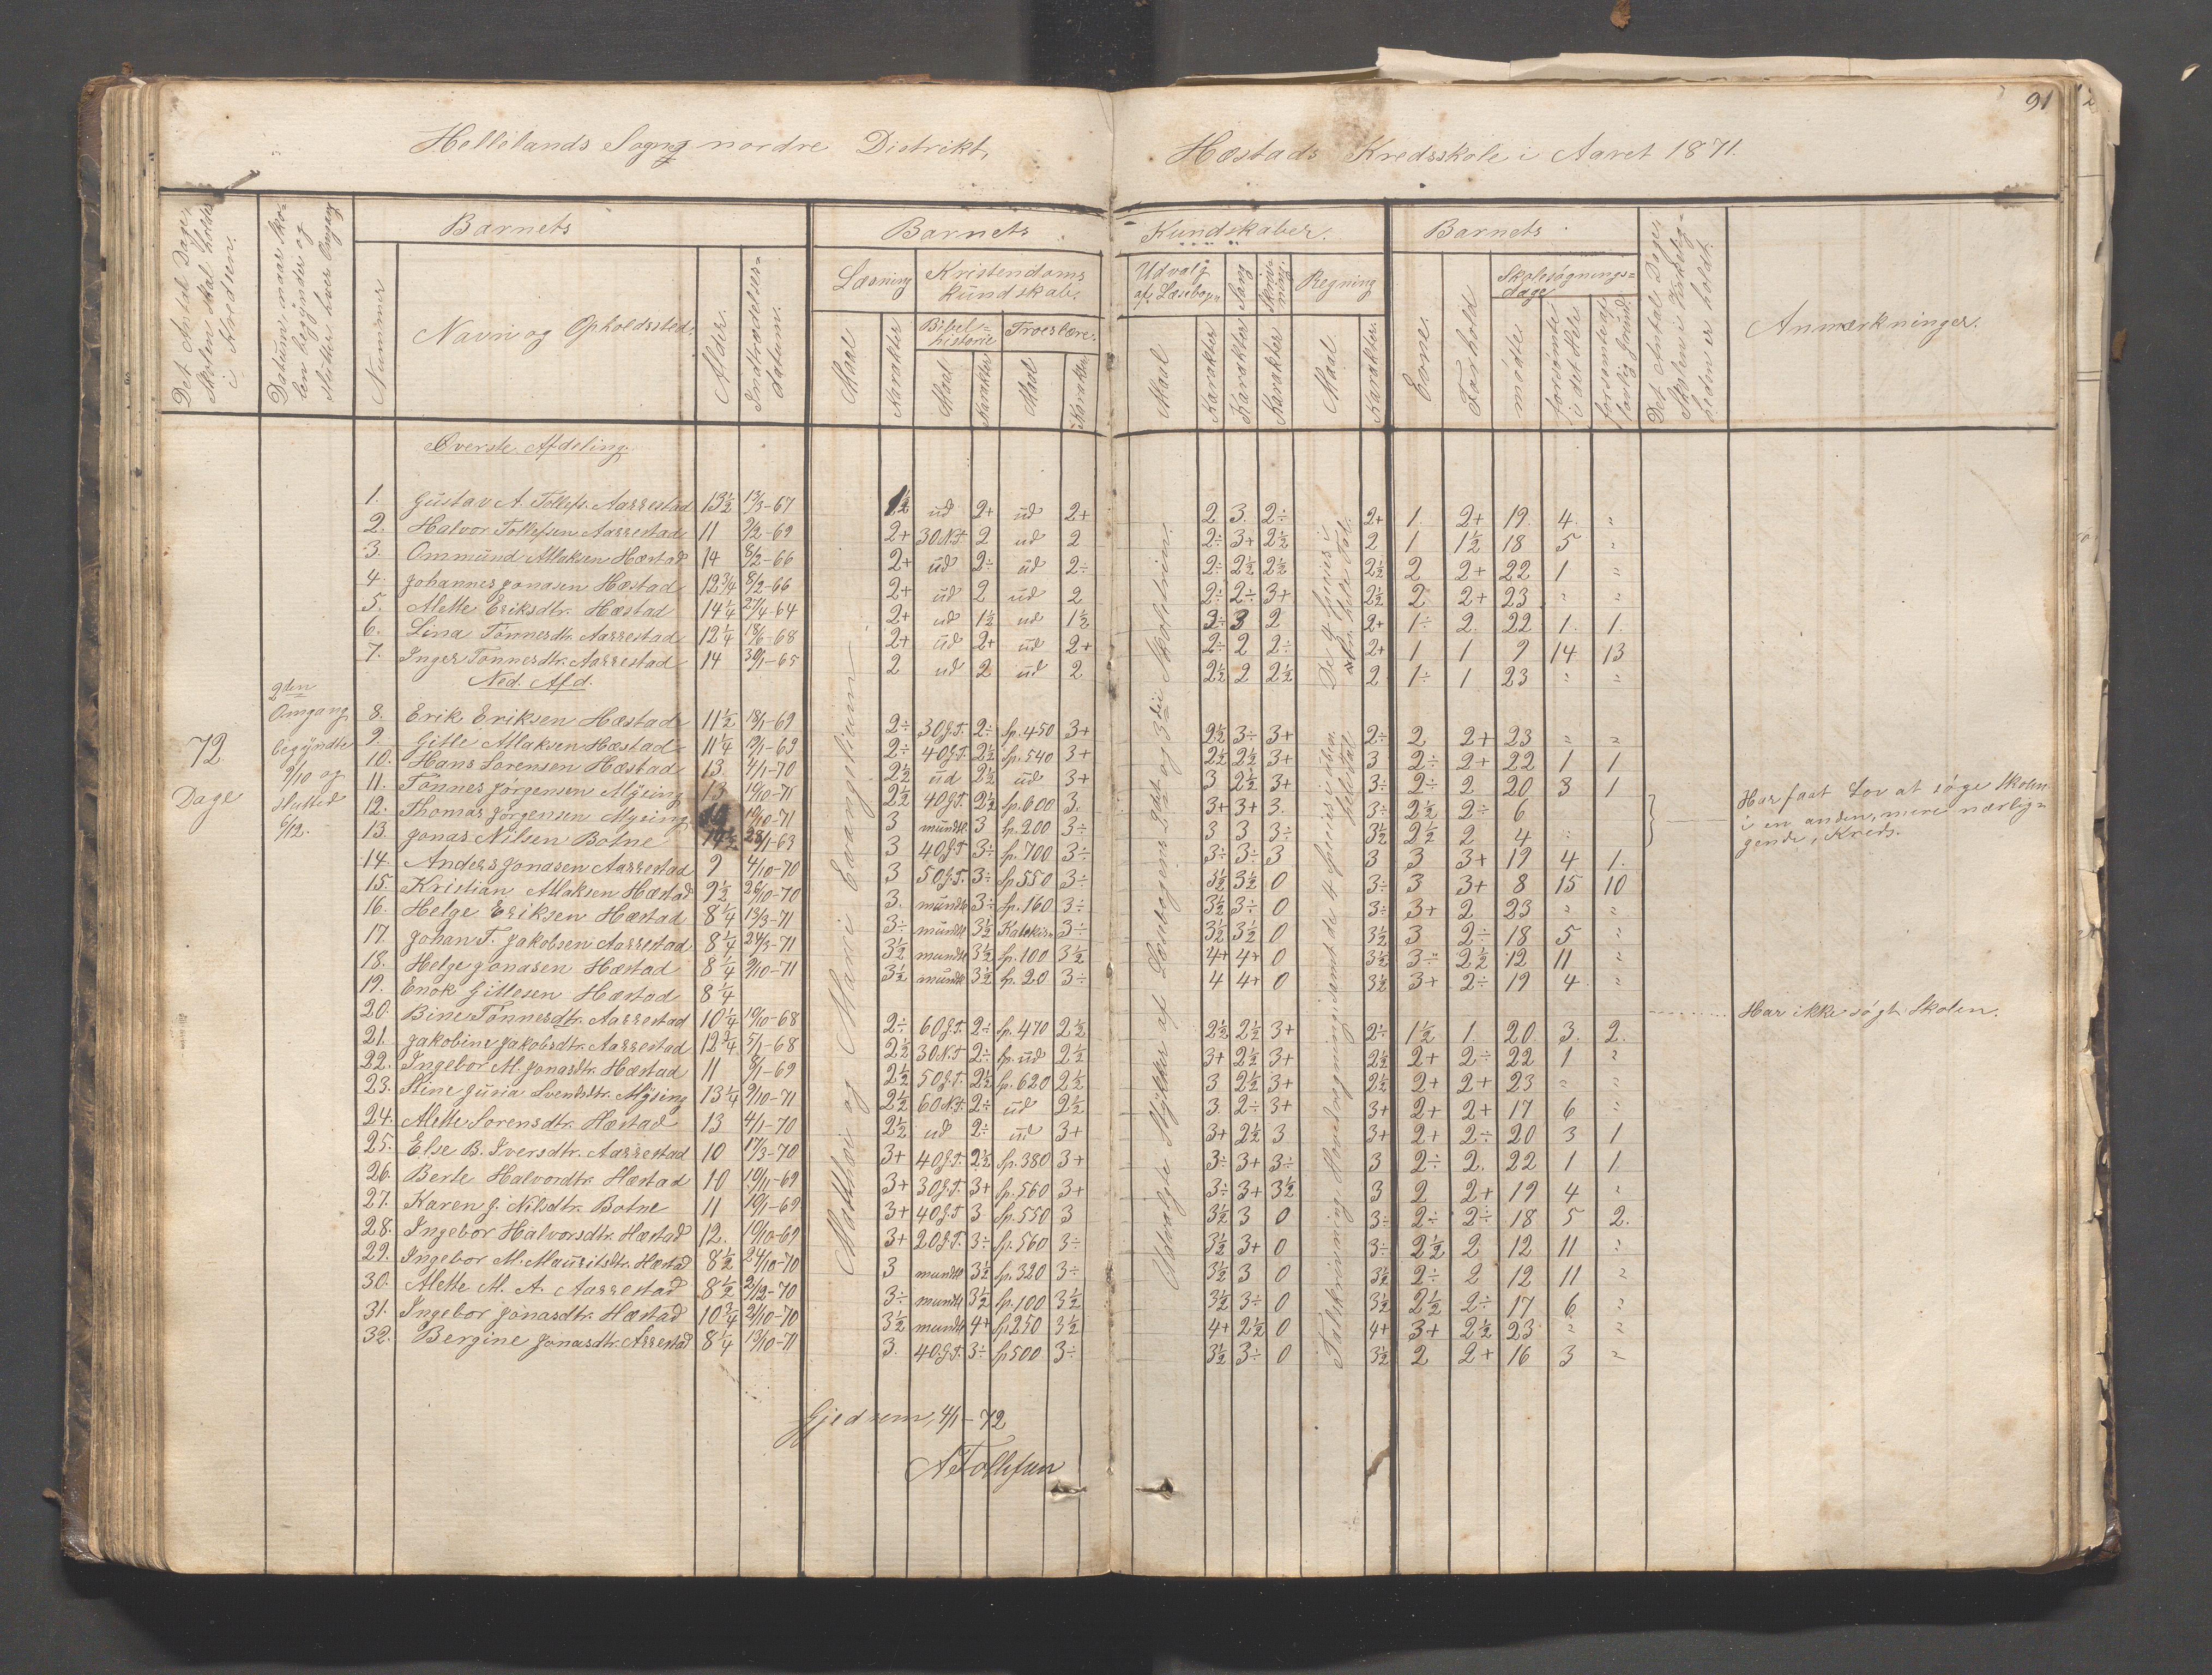 91
Hellelands Sogns nordre Distrikt,
Hæstads Kredsskole i Aaret 1871.
Det Antal Dage, Skolen skal holdes i Kredsen.
Datum, naar Skolen begynder og slutter hver Omgang
Barnets
Nummer
Navn og Opholdssted.
Alder.
Indtrædelsesdatum.
Barnets
Kundskaber.
Læsning
Maal
Karakter
Kristendomskundskab.
Bibelhistorie
Maal
Karakter
Troeslære.
Maal
Karakter
Udvalg af Læsebogen
Maal
Karakter
Sang
Karakter
Skrivning.
Karakter
Regning
Maal
Karakter.
Barnets
Evne.
Forhold
Skolesøgningsdage
mødte
forsømte i det Hele
forsømte af lovlig Grund.
Det Antal Dage, Skolen i Virkeligheden er holdt.
Anmærkninger.
72 Dage
2den Omgang begyndte 9/10 og slutted 6/12.
Matthæi og Marci Evangelium
Udvalgte Stykker af Læsebogens 2det og 3die Skoletrin.
De 4 Species i hele Tal.
Talskrivning, Hovedregning samt de 4 Species i ubn. hele Tal.
Øverste Afdeling.
1. Gustav A. Tollefs. Aarrestad 13½ 13/3-67 1½ ud 2+ ud 2+ 2 3. 2÷ 2+ 1. 2+ 19. 4. "
2. Halvor Tollefsen Aarrestad 11 2/2-69 2+ 30 N.T. 2 ud 2 2÷ 3+ 2½ 2 1 1½ 18 5 "
3. Ommund Atlaksen Hæstad 14 8/2-66 2+ ud 2÷ ud 2÷ 2÷ 2½ 2½ 2½ 2 2+ 22 1 "
4. Johannes Jonasen Hæstad 12¾ 8/2-66 2+ ud 2 ud 2 2÷ 2÷ 3+ 2½ 2 2+ 23 " "
5. Mette Eriksdtr. Hæstad 14¼ 27/4-64 2+ ud 1½ ud 1½ 2÷ 3 2 2+ 1÷ 2 22 1. 1.
6. Lina Tønnesdtr. Aarrestad 12¼ 18/6-68 2+ ud 2+ ud 2+ 2÷ 2 2÷ 2+ 1 1 9 14 13
7. Inger Tønnesdtr. Aarrestad 14 30/1-65 2 ud 2 ud 2 2½ 2 2½ 2 1÷ 1 23 " "
Ned. Afd.
8. Erik Eriksen Hæstad 11½ 18/1-69 2÷ 30 G.T. 2÷ Sp. 450 3+ 2½ 3÷ 3+ 2÷ 2 2+ 23 " "
9. Gitle Atlaksen Hæstad 11¼ 19/1-69 2÷ 40 G.T. 2½ Sp. 540 3+ 2½ 2½ 3+ 3 2÷ 2+ 22 1 1
10. Hans Sørensen Hæstad 13. 4/1-70 2½ ud 2½ ud 3+ 3 2½ 3+ 3÷ 2÷ 2 20 3 1
11. Tønnes Jørgensen Mysing 13 19/10-71 2½ 40 G.T. 2½ Sp. 600 3. 3+ 3+ 3. 3÷ 2½ 2÷ 6
12. Thomas Jørgensen Mysing 19/10-71 3 mundtl. 3 Sp. 200 3÷ 3 3 3÷ 3½ 2½ 2 4 "
Har faat Lov at søge Skolen i en anden, mere nærliggende, Kreds.
13. Jonas Nilsen Botne 28/1-63 3 40 G.T. 3÷ Sp. 700 3÷ 3÷ 3÷ 3 3 3 3+ 19 4 1.
14. Anders Jonasen Aarrestad 9 4/10-70 3 50 G.T. 3÷ Sp. 550 3÷ 3½ 3½ 0 3÷ 3 3+ 8 15 10
15. Kristian Atlaksen Hæstad 9½ 26/10-70 3. mundtl. 3÷ Sp. 160 3÷ 3½ 3÷ 0 3÷ 3+ 2 23 " "
16. Helge Eriksen Hæstad 8¼ 13/3-71 3÷ mundtl. 3½ Katekism 3÷ 3½ 3½ 0 3½ 3 2÷ 18 5 "
17. Johan T. Jakobsen Aarrestad 8¼ 24/3-71 3½ mundtl. 3½ Sp. 100 3½ 4+ 4+ 0 3½ 3÷ 2½ 12 11 "
18. Helge Jonasen Hæstad 8¼ 9/10-71 3½ mundtl. 3½ Sp. 20 3÷ 4 4+ 0 3½ 3+ 2÷ 19 4 "
19. Enok Gitlesen Hæstad 8¼ Har ikke søgt Skolen.
20. Bine Tønnesdtr. Aarrestad 10¼ 19/10-68 2÷ 60 G.T. 2÷ Sp. 470 2½ 2½ 2½ 3+ 2÷ 1½ 1. 20. 3. 2.
21. Jakobine Jakobsdtr. Aarrestad 12¾ 5/1-68 2½ 30 N.T. 2÷ Sp. ud 2½ 3+ 2½ 3+ 2½ 2+ 2÷ 22 1 "
22. Ingebor M. Jonasdtr. Hæstad 11 8/1-69 2½ 50 G.T. 2½ Sp. 620 2½ 3 2½ 3+ 2½ 2+ 2+ 23 " "
23. Stine Juria Svendsdtr. Mysing 13¼ 9/10-71 2½ 60 N.T. 2÷ ud 2½ 3. 2÷ 3+ 3+ 2+ 2+ 17 6 "
24. Mette Sørensdtr. Hæstad 13 4/1-70 2½ ud 2÷ ud 3+ 3+ 2½ 3 3+ 2+ 2÷ 20 3 1
25. Else B. Iversdtr. Aarrestad 10 17/3-70 3+ 40 G.T. 2½ Sp. 380 3+ 3÷ 3+ 3÷ 3 2÷ 2. 22 1 1
26. Berte Halvordtr. Hæstad 10 19/11-69 3+ 30 G.T. 3+ Sp. 560 3+ 3÷ 3+ 3½ 3 2 2+ 19 4 "
27. Karen G. Nilsdtr. Botne 11 19/1-69 3+ 40 G.T. 3 Sp. 550 3 3½ 3 0 3÷ 2÷ 2÷ 18 5 2.
28. Ingebor Halvorsdtr. Hæstad 12. 19/10-69 3+ 20 G.T. 3÷ Sp. 560 3÷ 3½ 3+ 0 3÷ 2½ 2 12 11 "
29. Ingebor M. Mauritsdtr. Hæstad 8½ 24/10-70 3 mundtl 3½ Sp. 320 3÷ 3½ 3 0 3½ 2÷ 2 12 11 "
30. Mette M. A. Aarrestad 8½ 2/12-70 3÷ mundtl 3½ Sp. 100 3½ 3½ 3÷ 0 3½ 2½ 2÷ 17 6 "
31. Ingebor Jonasdtr. Hæstad 10¾ 21/10-70 3½ mundtl 4+ Sp 250 3½ 4+ 2½ 0 4+ 3+ 2½ 23 " "
32. Bergine Jonasdtr. Arrestad 8¼ 13/10-71 3. 40 G.T. 3÷ Sp 500 3÷ 3½ 3÷ 0 3½ 2 2+ 16 3 "
Gjedrem, 4/1-72
A Tollefsen